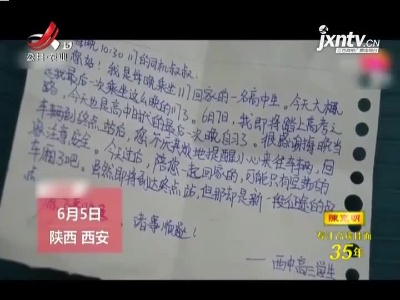 jxntv.cn
晚10:30 117的司机叔叔:
您好!我是每晚乘坐117回家的一名高中生。今天大概
是我最后一次乘坐这么晚的117了。6月7日,我即将踏上高考之
路,今天也是高中时代的最后一次晚自习了。很感谢每晚当
车辆到终点站后,您不厌其烦地提醒小心来往车辆,回
家注意安全。今天过后,陪您一起回家的,可能只有空荡的
车厢了吧。虽然即将到达终点站,但那却是新一段征途的起
点
诸事顺遂!
——西中高三学生
6月5日
陕西 西安
35年